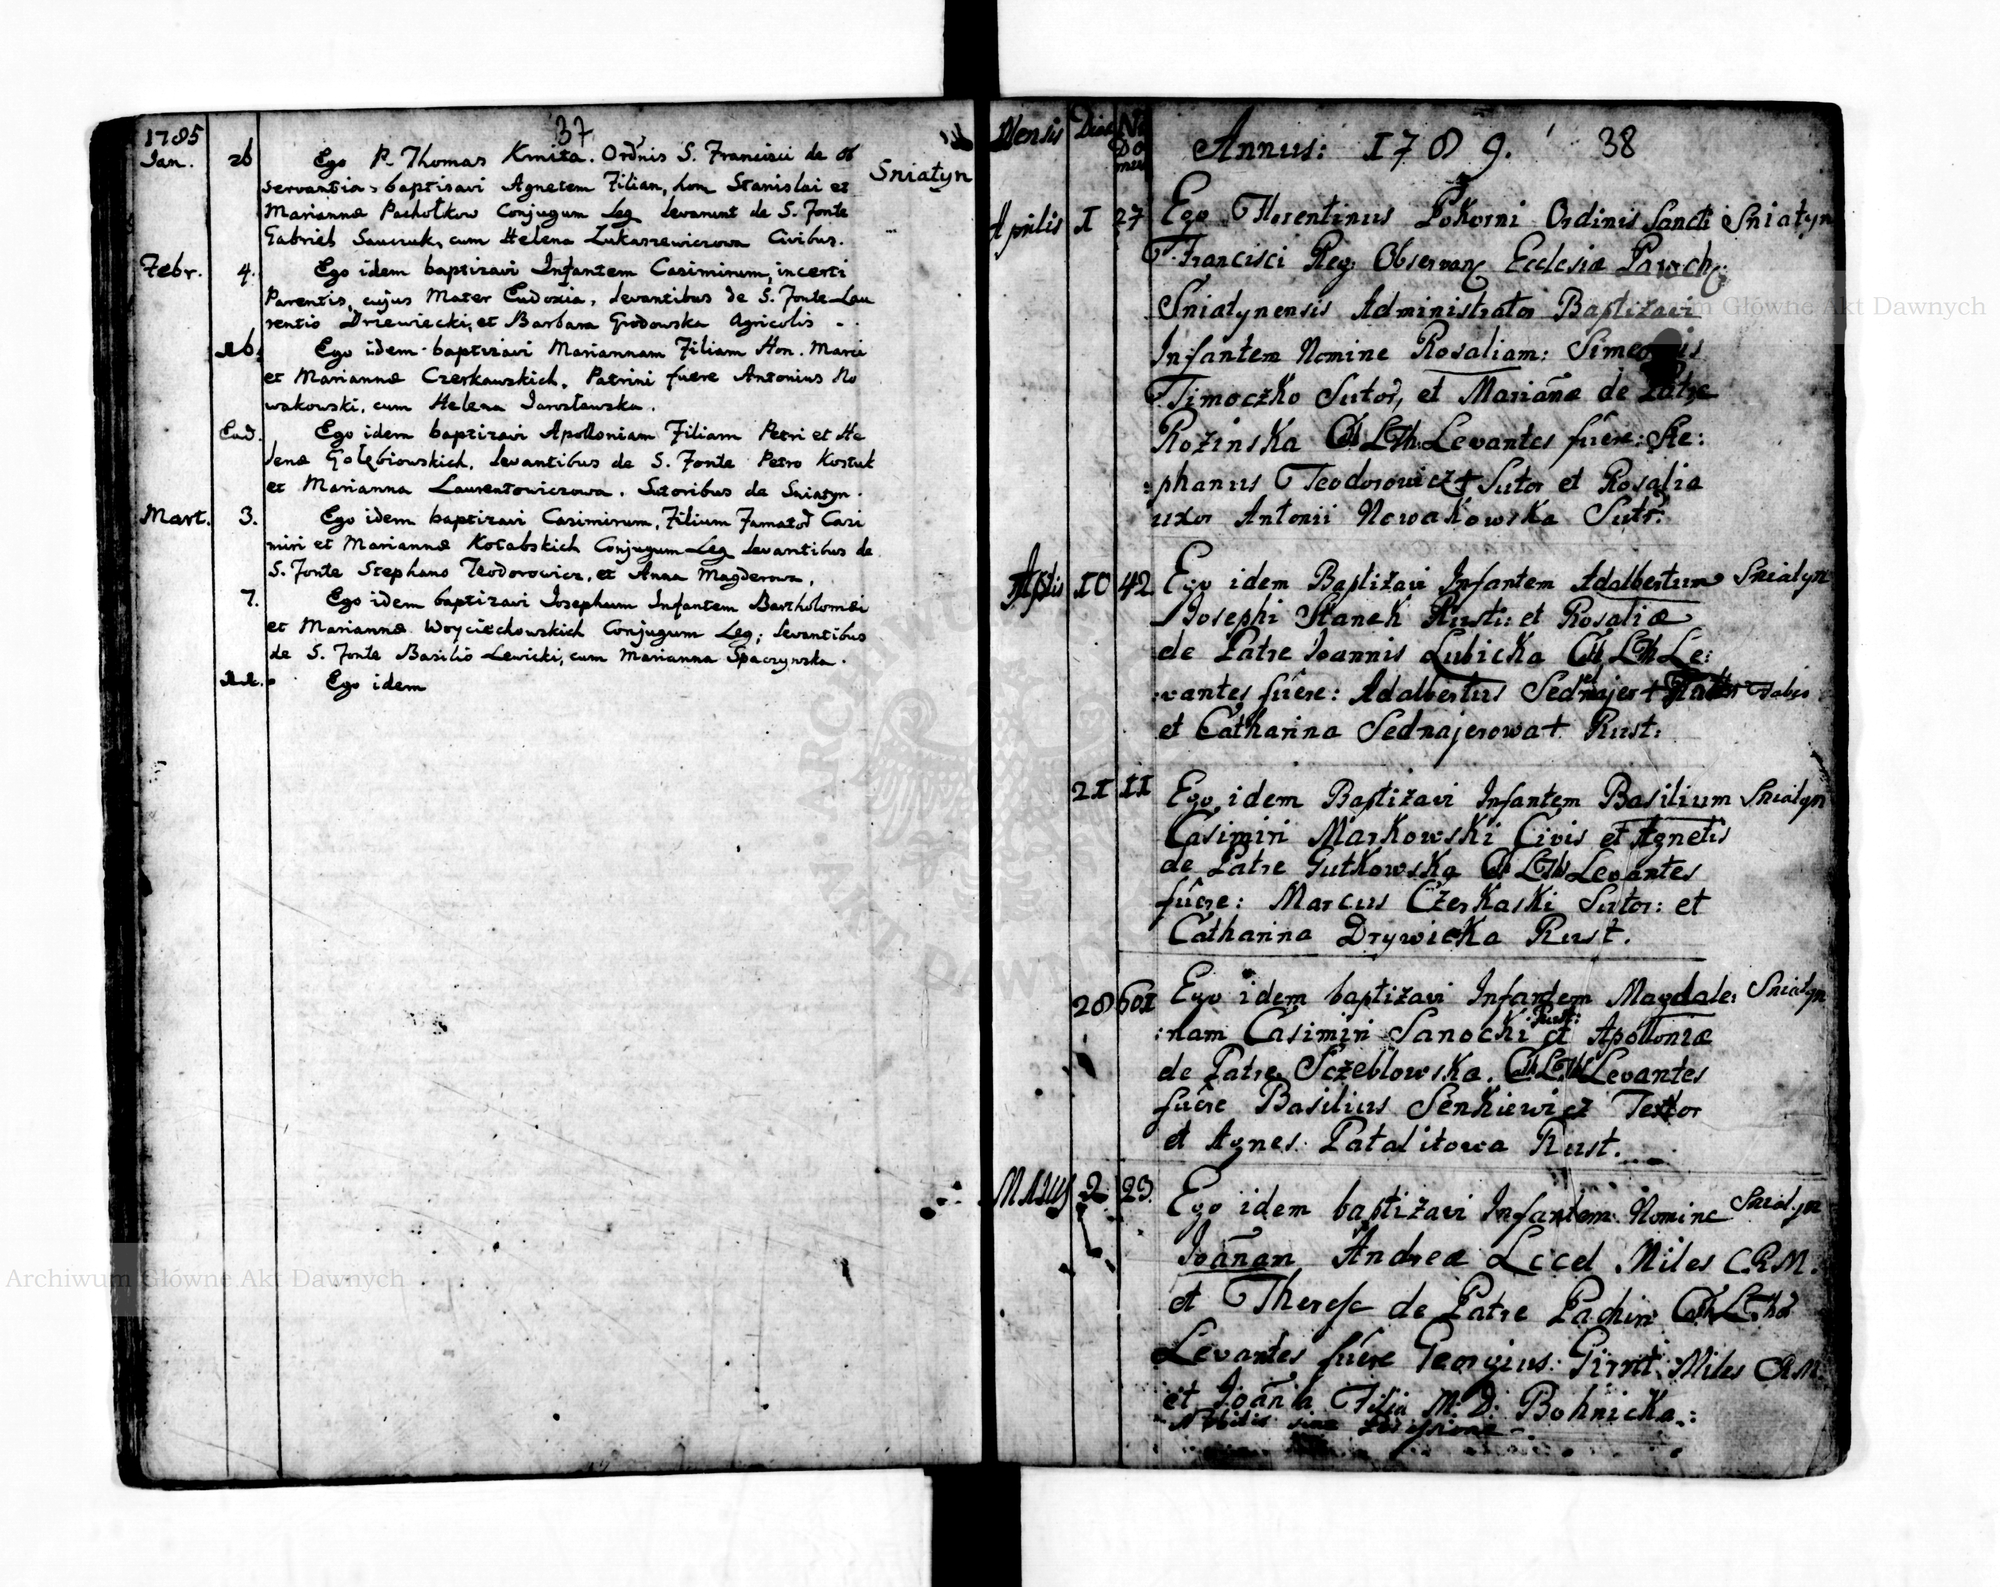 1785
37
Jan. 26 Ego P. Thomas Kmita. Ordnis S. Francisci de ob
servantia, baptisavi Agnetem Filian, hon Stanislai et Sniatyn
Mariannæ Pachołkow Conjugum Leg levarunt de S. Fonte
Gabriel Sawczuk, cum Helena Łukaszewiczowa Civibus.
Febr. 4. Ego idem baptizavi Infantem Casimirum, incerti
Parentis, cujus Mater Eudoxia, levantibus de S. Fonte Lau
rentio Drzewiecki, et Barbara Grodowska Agricolis -
26. Ego idem baptizavi Mariannam Filiam Hon. Marci
et Mariannæ Czerkawskich. Patrini fuere Antonius No
wakowski, cum Helena Jarosławska.
Ead. Ego idem baptizavi Apolloniam Filiam Petri et He
lenæ Gołębiowskich, levantibus de S. Fonte Petro Kostuk
et Marianna Laurentowiczowa. Sutoribus de Sniatyn.
Mart. 3. Ego idem baptizavi Casimirum, Filium Famator Casi
miri et Mariannæ Kotabskich Conjugum Leg levantibus de
S. Fonte Stephano Teodorowicz, et Anna Magderowa.
7. Ego idem baptizavi Josephum Infantem Bartholomæi
et Mariannæ Woyciechowskich Conjugum Leg; levantibus
de S. Fonte Basilio Lewicki, cum Marianna Spaczynska.
22. Ego idem
Mensis Dies No Do mus
Annus: 1789. 38
Aprilis 1 27 Ego Florentinus Pokorni Ordinis Sancti Sniatyn
Francisci Reg: Observan Ecclesiæ Paroch:
Sniatynensis Administrator Baptizavi
Infantem Nomine Rosaliam: Simeonis
Timoczko Sutor, et Mariañæ de Patre
Rozinska Levantes fuere: Ste:
:phanus Teodorowicz + Sutor et Rosalia
uxor Antonii Nowakowska Sutr.
Aplis 10 42 Ego idem Baptizavi Infantem Adalbertum Sniatyn
Josephi Stanek Rusti: et Rosaliæ
de Patre Joannis Lubicka Le:
:vantes fuere: Adalbertus Sednajer + Faber
et Catharina Sednajerowa + Rust:
21 11 Ego idem Baptizavi Infantem Basilium Sniatyn
Casimiri Markowski Civis et Agnetis
de Patre Gutkowska Levantes
fuere: Marcus Czerkaski Sutor: et
Catharina Drywicka Rust.
28 601 Ego idem baptizavi Infantem Magdale: Sniatyn
:nam Casimiri Sanocki Rust: et Apolloniæ
de Patre Sczeblowska. Levantes
fuere Basilius Senkiewicz Textor
et Agnes Patalitowa Rust.
Maius 2 23. Ego idem baptizavi Infantem Nomine Sniatyn
Joañam Andreæ Lccel Miles C.R.M.
et Therese de Patre Pachin
Levantes fuere Georgius Girnt Miles C.R.M.
et Joaña Filia M: D: Bohnicka.:
Nobilis sine